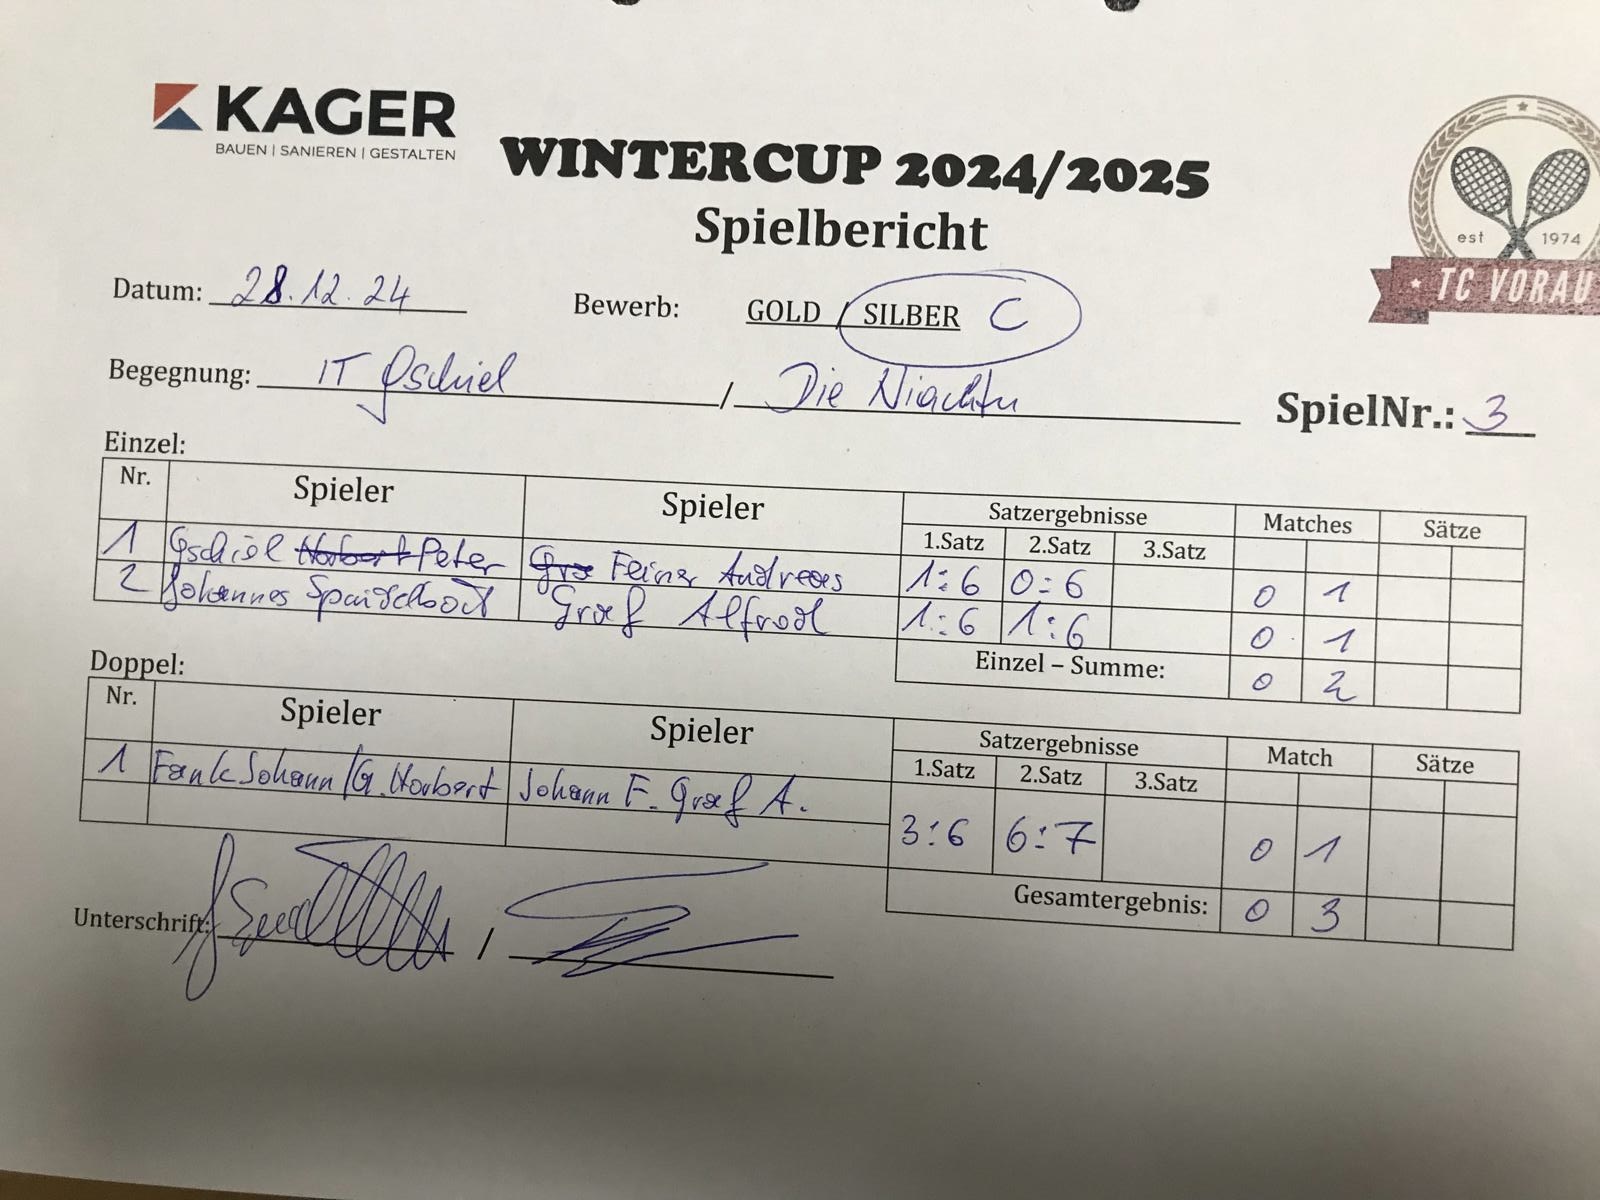 KAGER
BAUEN | SANIEREN | GESTALTEN
WINTERCUP 2024/2025
Spielbericht
est 1974
TC VORAU
Datum: 28.12.24 Bewerb: GOLD / SILBER C
Begegnung: IT Gschiel / Die Niachtn SpielNr.: 3
Einzel:
Nr. Spieler Spieler Satzergebnisse Matches Sätze
1.Satz 2.Satz 3.Satz
1 Gschiel Norbert Peter Gra Feiner Andreas 1:6 0:6 0 1
2 Johannes Graf Alfred 1:6 1:6 0 1
Einzel – Summe: 0 2
Doppel:
Nr. Spieler Spieler Satzergebnisse Match Sätze
1.Satz 2.Satz 3.Satz
1 Fank Johann / G. Norbert Johann F. Graf A. 3:6 6:7 0 1
Gesamtergebnis: 0 3
Unterschrift: /